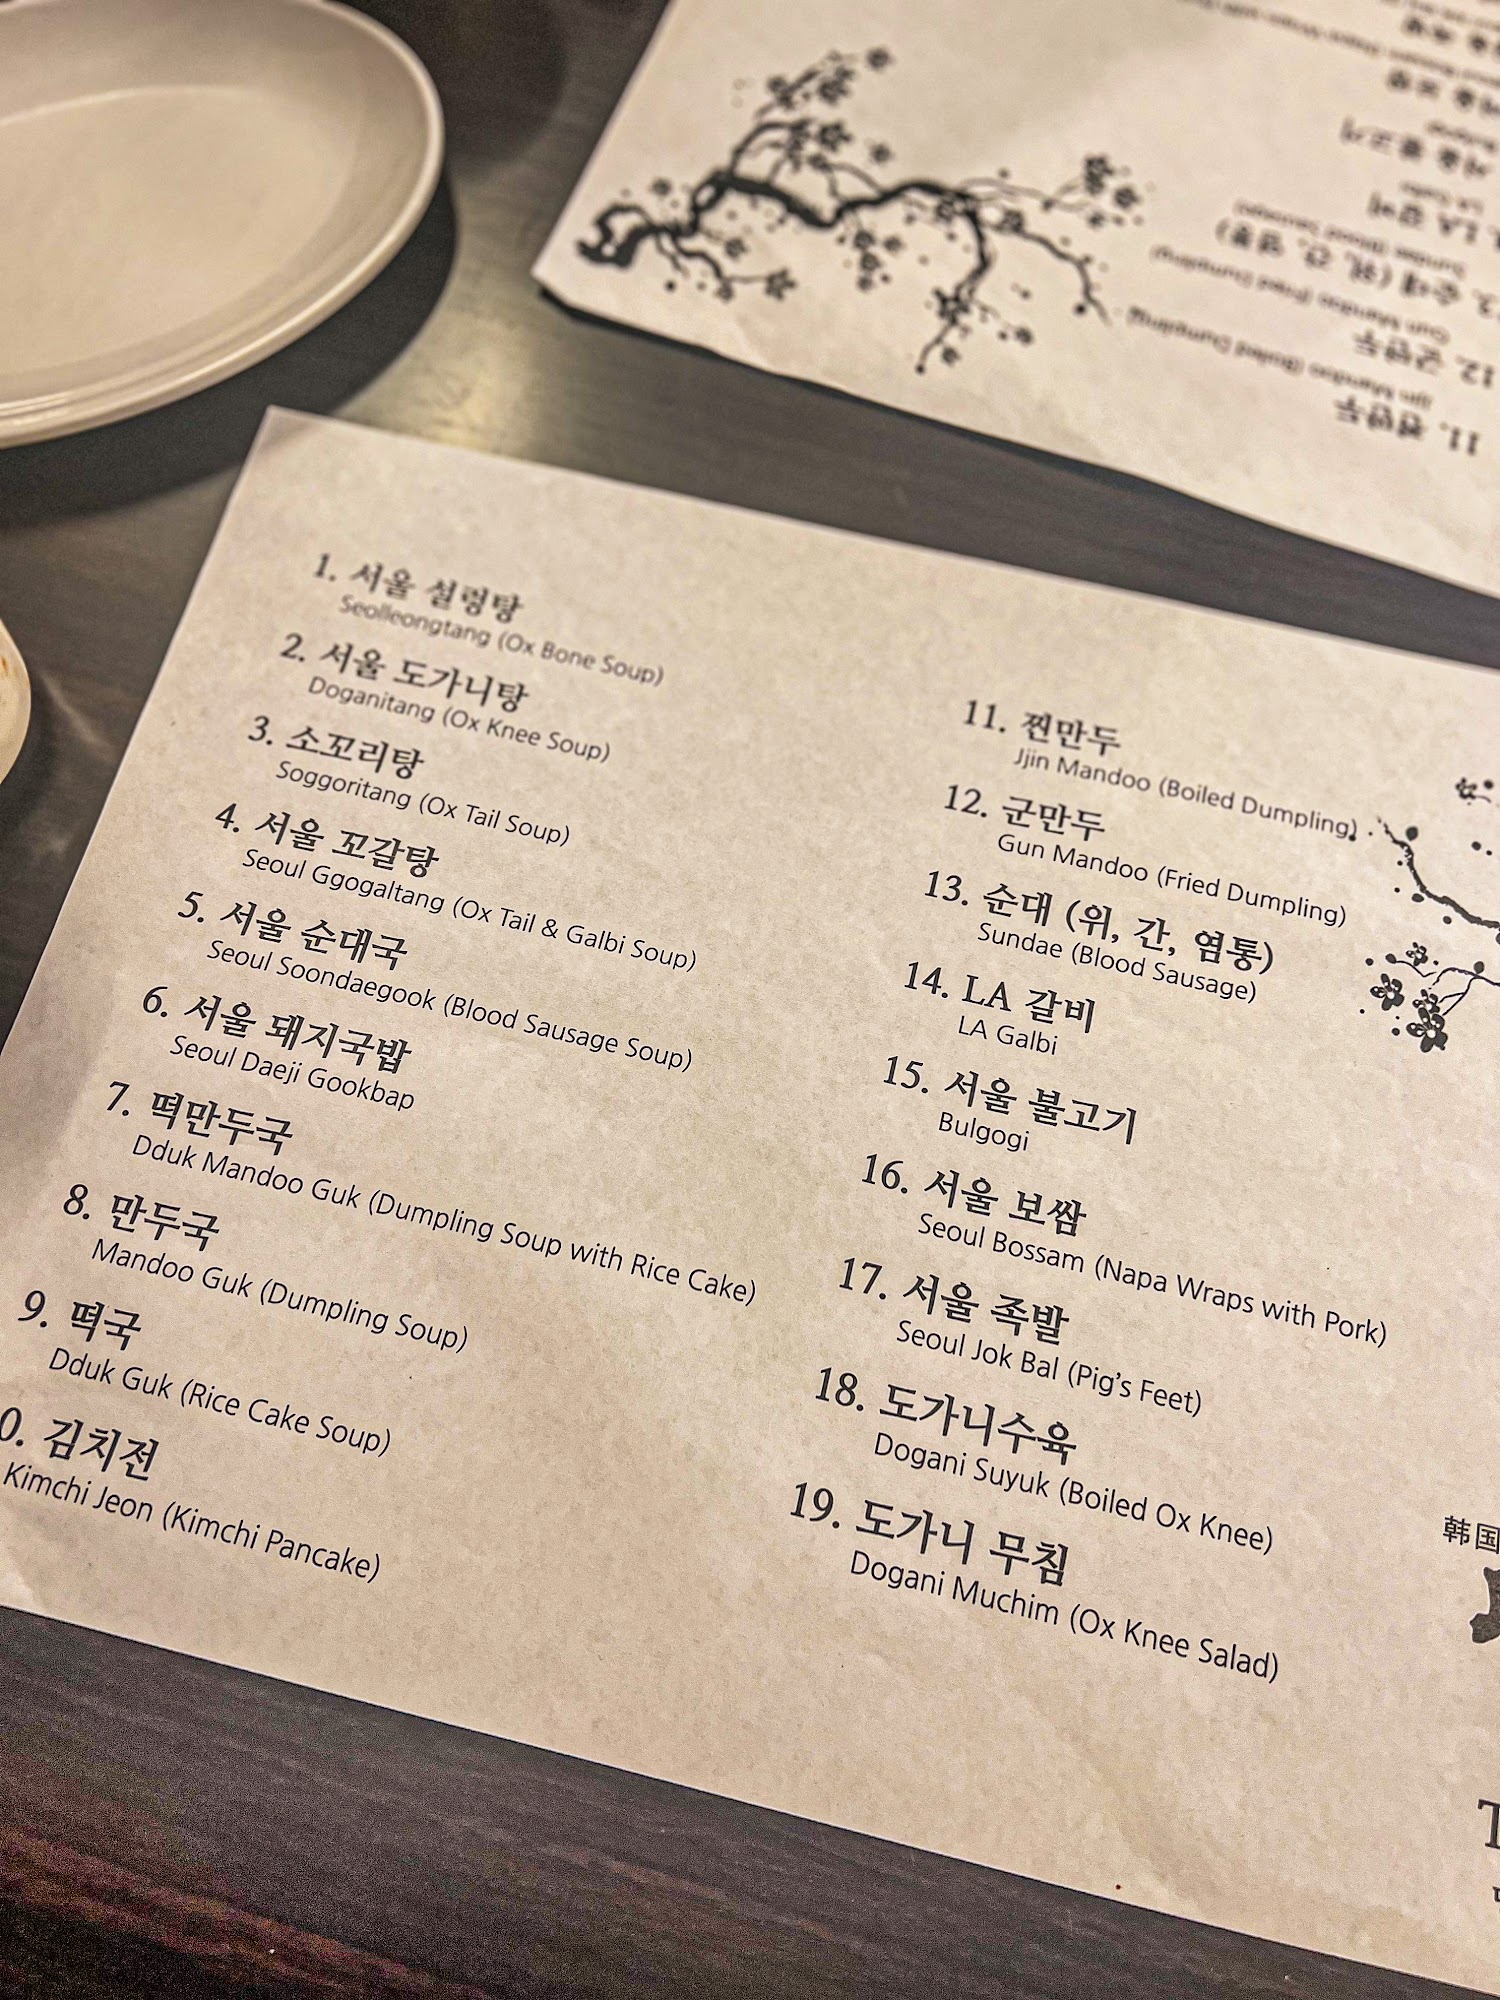 1. 서울 설렁탕
Seolleongtang (Ox Bone Soup)
2. 서울 도가니탕
Doganitang (Ox Knee Soup)
3. 소꼬리탕
Soggoritang (Ox Tail Soup)
4. 서울 꼬갈탕
Seoul Ggogaltang (Ox Tail & Galbi Soup)
5. 서울 순대국
Seoul Soondaegook (Blood Sausage Soup)
6. 서울 돼지국밥
Seoul Daeji Gookbap
7. 떡만두국
Dduk Mandoo Guk (Dumpling Soup with Rice Cake)
8. 만두국
Mandoo Guk (Dumpling Soup)
9. 떡국
Dduk Guk (Rice Cake Soup)
0. 김치전
Kimchi Jeon (Kimchi Pancake)
11. 찐만두
Jjin Mandoo (Boiled Dumpling)
12. 군만두
Gun Mandoo (Fried Dumpling)
13. 순대 (위, 간, 염통)
Sundae (Blood Sausage)
14. LA 갈비
LA Galbi
15. 서울 불고기
Bulgogi
16. 서울 보쌈
Seoul Bossam (Napa Wraps with Pork)
17. 서울 족발
Seoul Jok Bal (Pig's Feet)
18. 도가니수육
Dogani Suyuk (Boiled Ox Knee)
19. 도가니 무침
Dogani Muchim (Ox Knee Salad)
韩国
11. 찐만두
Jjin Mandoo (Boiled Dumpling)
12. 군만두
Gun Mandoo (Fried Dumpling)
순대 (위, 간, 염통)
Sundae (Blood Sausage)
LA 갈비
LA Galbi
서울 불고기